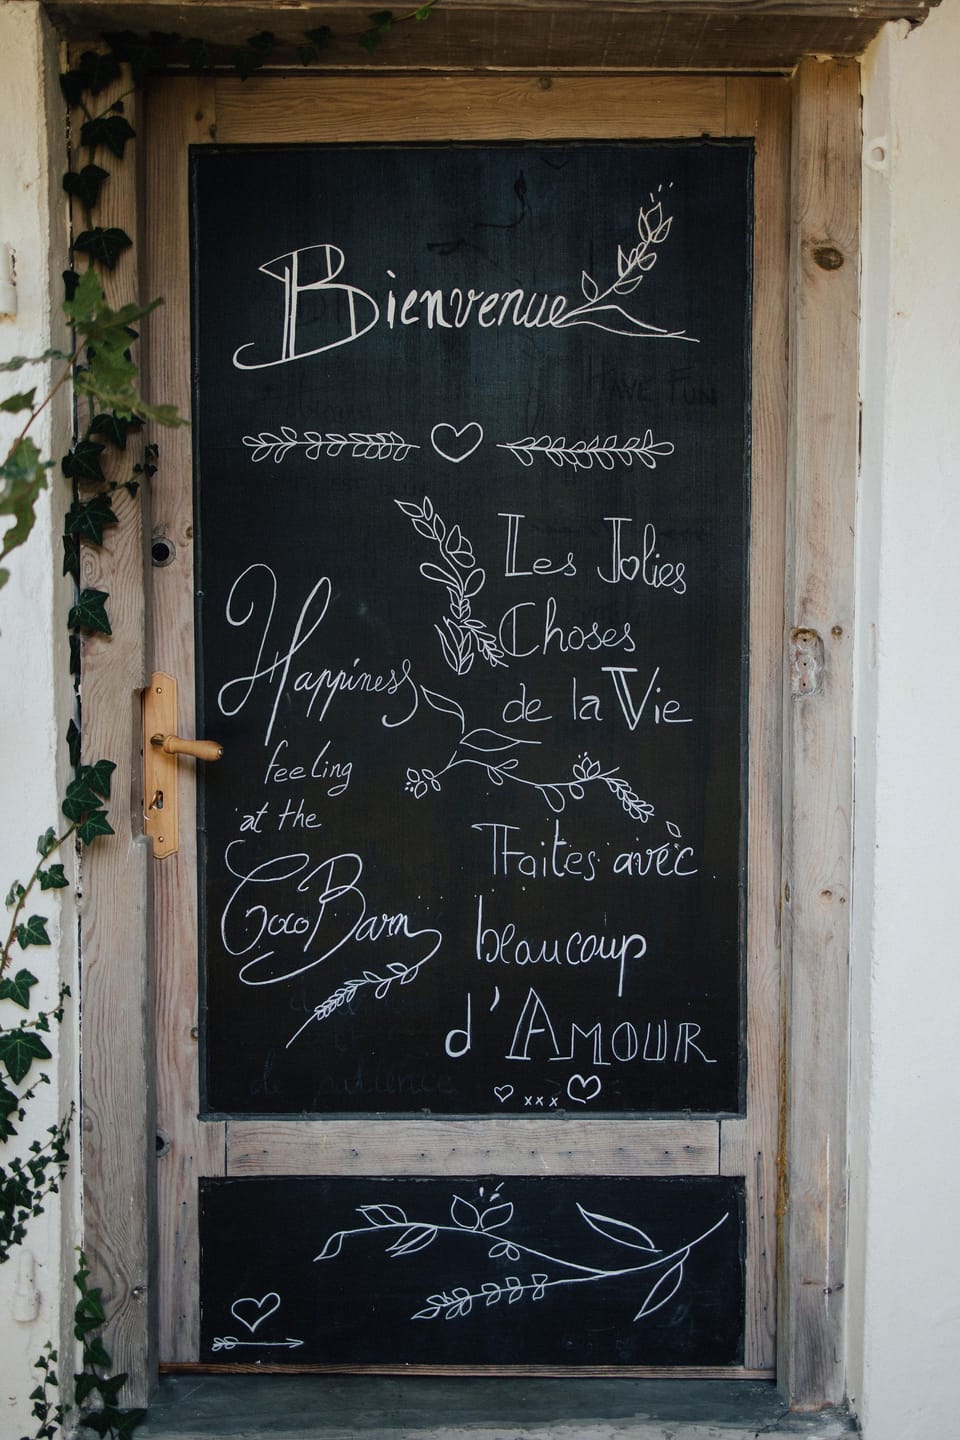 Bienvenue
HAVE FUN
Les Jolies
Choses
de la Vie
Happiness
feeling
at the
Coco Barn
Faites avèc
beaucoup
d'AMOUR
xxx
de patience